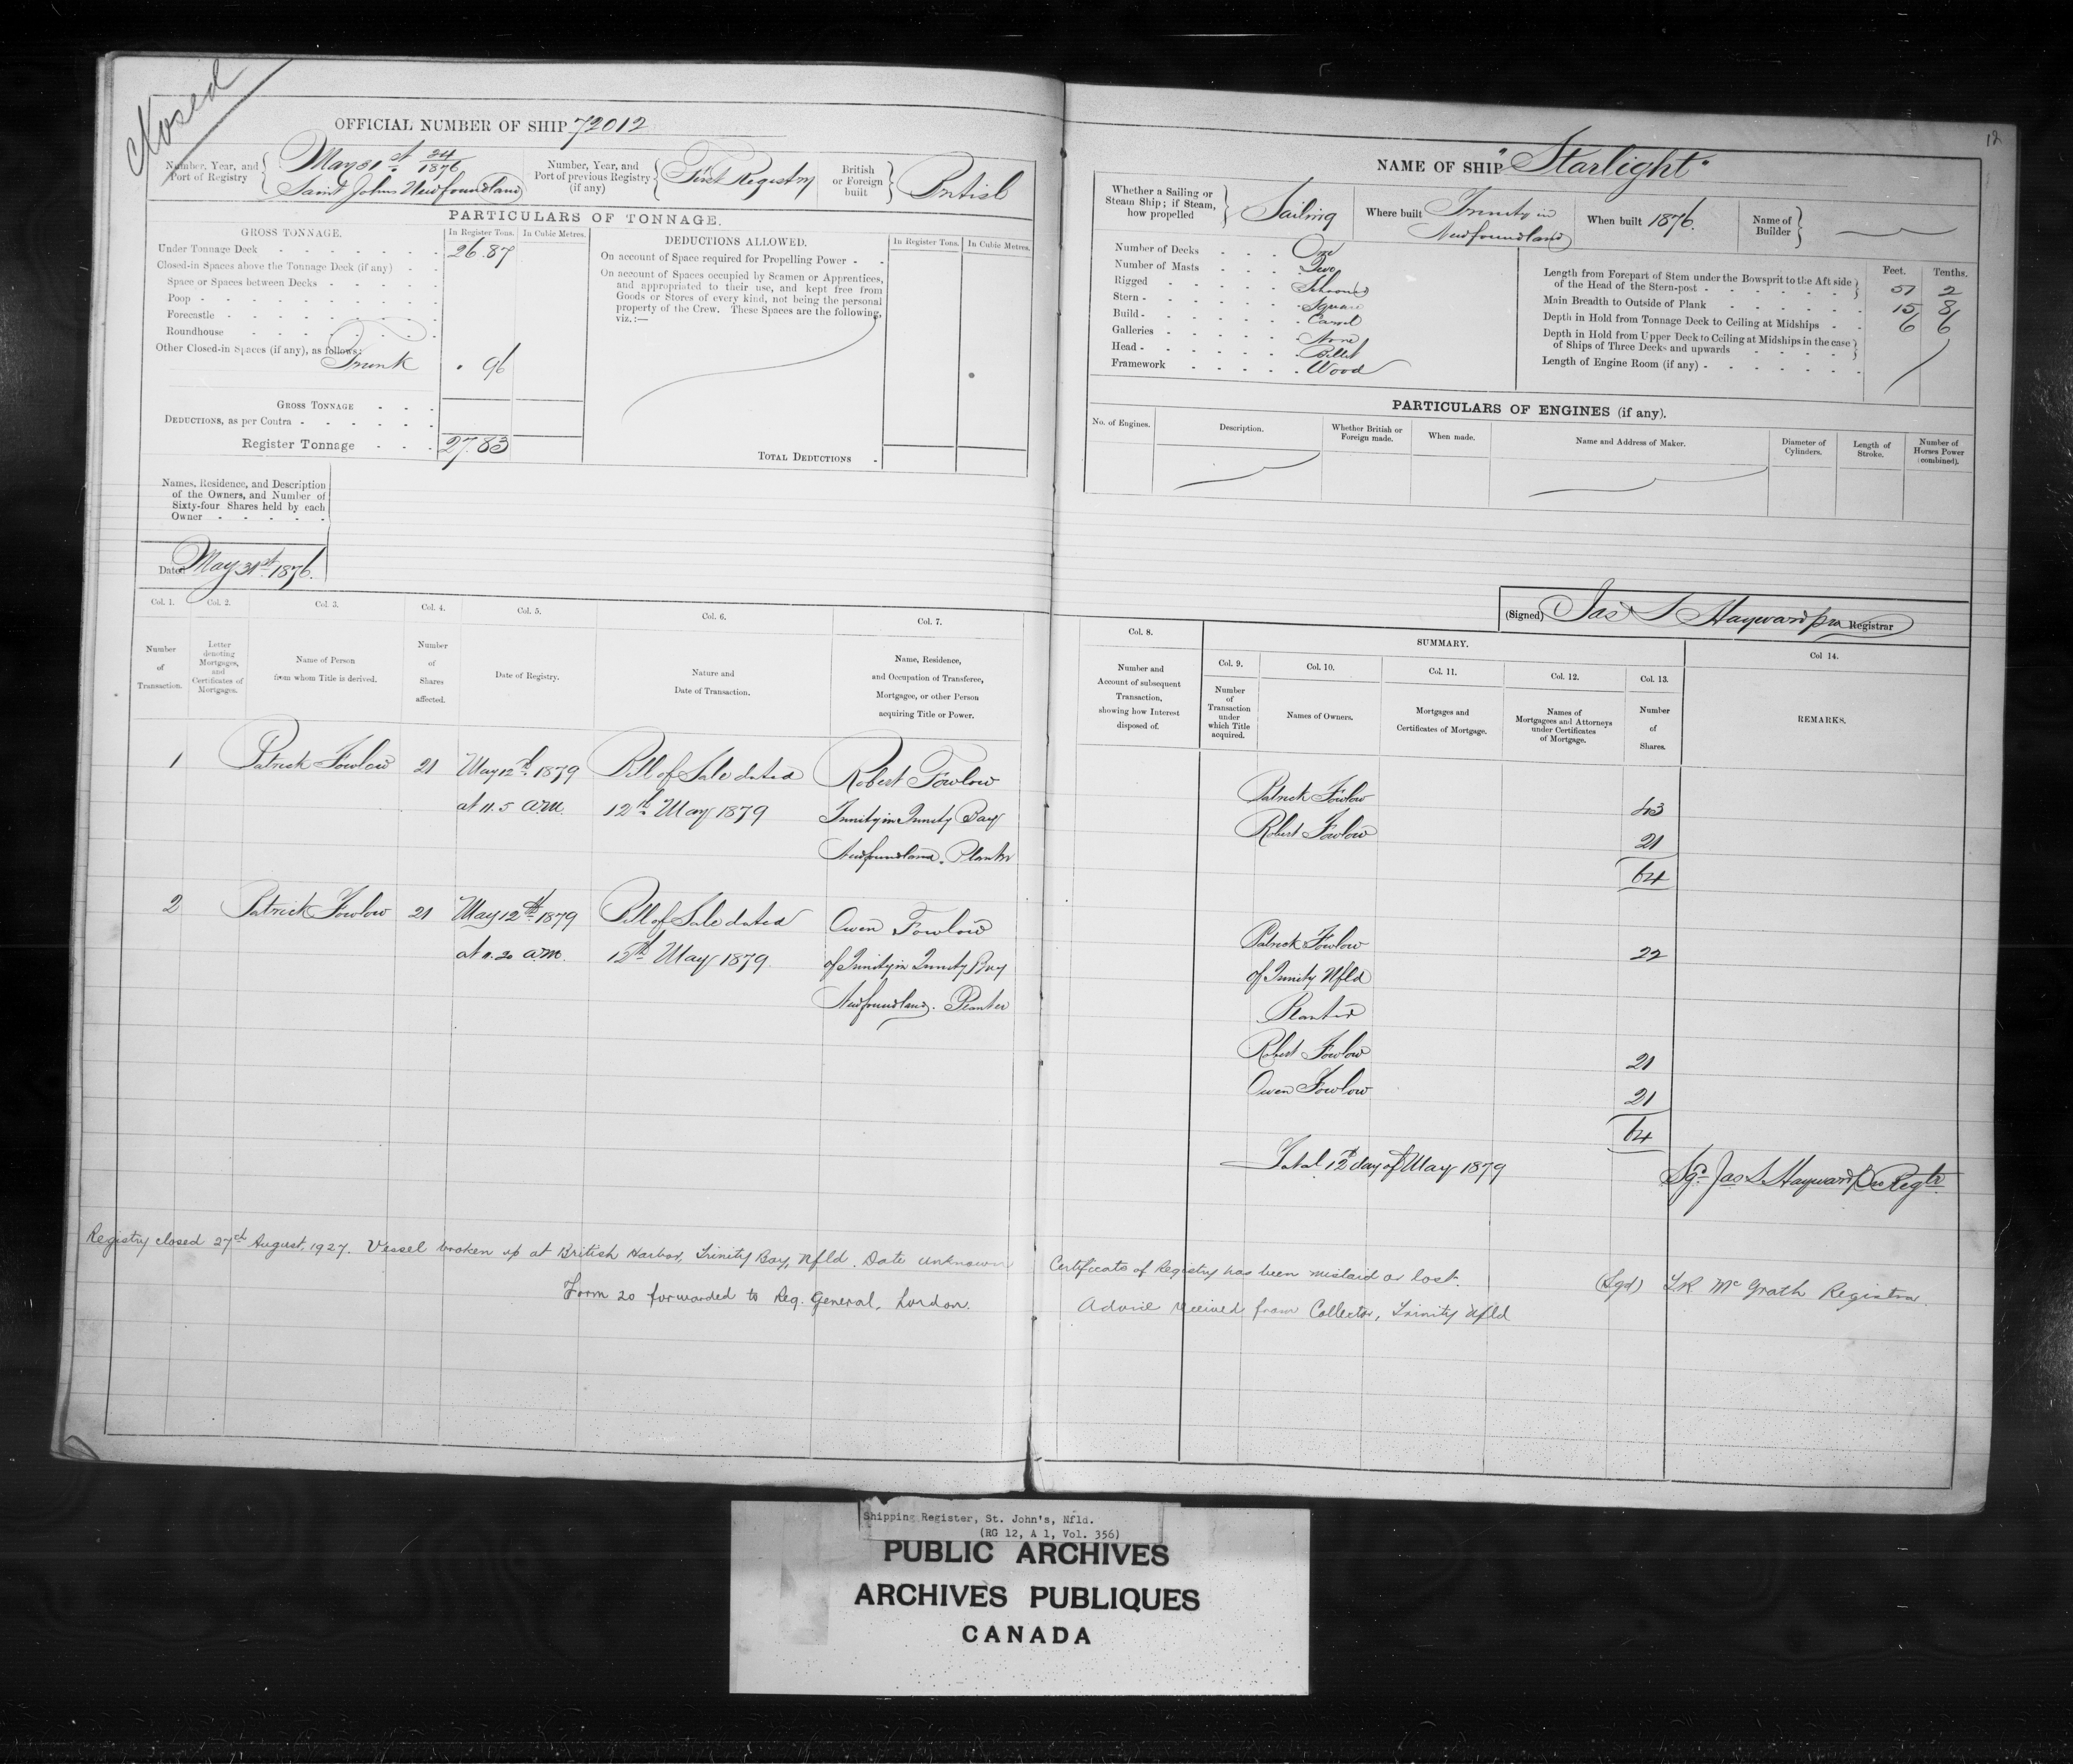 Closed
OFFICIAL NUMBER OF SHIP 72012
Number, Year, and Port of Registry { May 31st 24/1876
Saint Johns Newfoundland
Number, Year, and Port of previous Registry (if any) { First Registry
British or Foreign built } British
PARTICULARS OF TONNAGE.
GROSS TONNAGE.
In Register Tons.
In Cubic Metres.
Under Tonnage Deck 26.87
Closed-in Spaces above the Tonnage Deck (if any)
Space or Spaces between Decks
Poop
Forecastle
Roundhouse
Other Closed-in Spaces (if any), as follows:
Trunk . 96
GROSS TONNAGE
DEDUCTIONS, as per Contra
Register Tonnage 27.83
DEDUCTIONS ALLOWED.
In Register Tons.
In Cubic Metres.
On account of Space required for Propelling Power
On account of Spaces occupied by Seamen or Apprentices,
and appropriated to their use, and kept free from
Goods or Stores of every kind, not being the personal
property of the Crew. These Spaces are the following,
viz.:—
TOTAL DEDUCTIONS
Names, Residence, and Description
of the Owners, and Number of
Sixty-four Shares held by each
Owner
Dated May 31st 1876.
Col. 1.
Number of Transaction.
Col. 2.
Letter denoting Mortgages, and Certificates of Mortgages.
Col. 3.
Name of Person from whom Title is derived.
Col. 4.
Number of Shares affected.
Col. 5.
Date of Registry.
Col. 6.
Nature and Date of Transaction.
Col. 7.
Name, Residence, and Occupation of Transferee, Mortgagee, or other Person acquiring Title or Power.
1 Patrick Fowlow 21 May 12th 1879 Bill of Sale dated Robert Fowlow
at 11.5 a.m. 12th May 1879 Trinity in Trinity Bay
Newfoundland. Planter
2 Patrick Fowlow 21 May 12th 1879 Bill of Sale dated Owen Fowlow
at 11.20 a.m. 12th May 1879 of Trinity in Trinity Bay
Newfoundland. Planter
Registry closed 27th August, 1927. Vessel broken up at British Harbor, Trinity Bay, Nfld. Date unknown
Form 20 forwarded to Reg. General, London.
12
NAME OF SHIP "Starlight"
Whether a Sailing or Steam Ship; if Steam, how propelled } Sailing
Where built Trinity in
Newfoundland
When built 1876.
Name of Builder }
Number of Decks One
Number of Masts Two
Rigged Schooner
Stern Square
Build Carvel
Galleries None
Head Billet
Framework Wood
Feet. Tenths.
Length from Forepart of Stem under the Bowsprit to the Aft side
of the Head of the Stern-post 51 2
Main Breadth to Outside of Plank 15 8
Depth in Hold from Tonnage Deck to Ceiling at Midships 6 6
Depth in Hold from Upper Deck to Ceiling at Midships in the case
of Ships of Three Decks and upwards
Length of Engine Room (if any)
PARTICULARS OF ENGINES (if any).
No. of Engines.
Description.
Whether British or Foreign made.
When made.
Name and Address of Maker.
Diameter of Cylinders.
Length of Stroke.
Number of Horses Power (combined).
(Signed) Jas S Hayward pro Registrar
Col. 8.
Number and Account of subsequent Transaction, showing how Interest disposed of.
SUMMARY.
Col. 9.
Number of Transaction under which Title acquired.
Col. 10.
Names of Owners.
Col. 11.
Mortgages and Certificates of Mortgage.
Col. 12.
Names of Mortgagees and Attorneys under Certificates of Mortgage.
Col. 13.
Number of Shares.
Col 14.
REMARKS.
Patrick Fowlow 43
Robert Fowlow 21
64
Patrick Fowlow 22
of Trinity Nfld
Planter
Robert Fowlow 21
Owen Fowlow 21
64
12th day of May 1879
Sgd Jas S Hayward pro Regtr
Certificate of Registry has been mislaid or lost.
(Sgd) McGrath Registrar.
Advice received from Collector, Trinity Nfld
Shipping Register, St. John's, Nfld.
(RG 12, A 1, Vol. 356)
PUBLIC ARCHIVES
ARCHIVES PUBLIQUES
CANADA